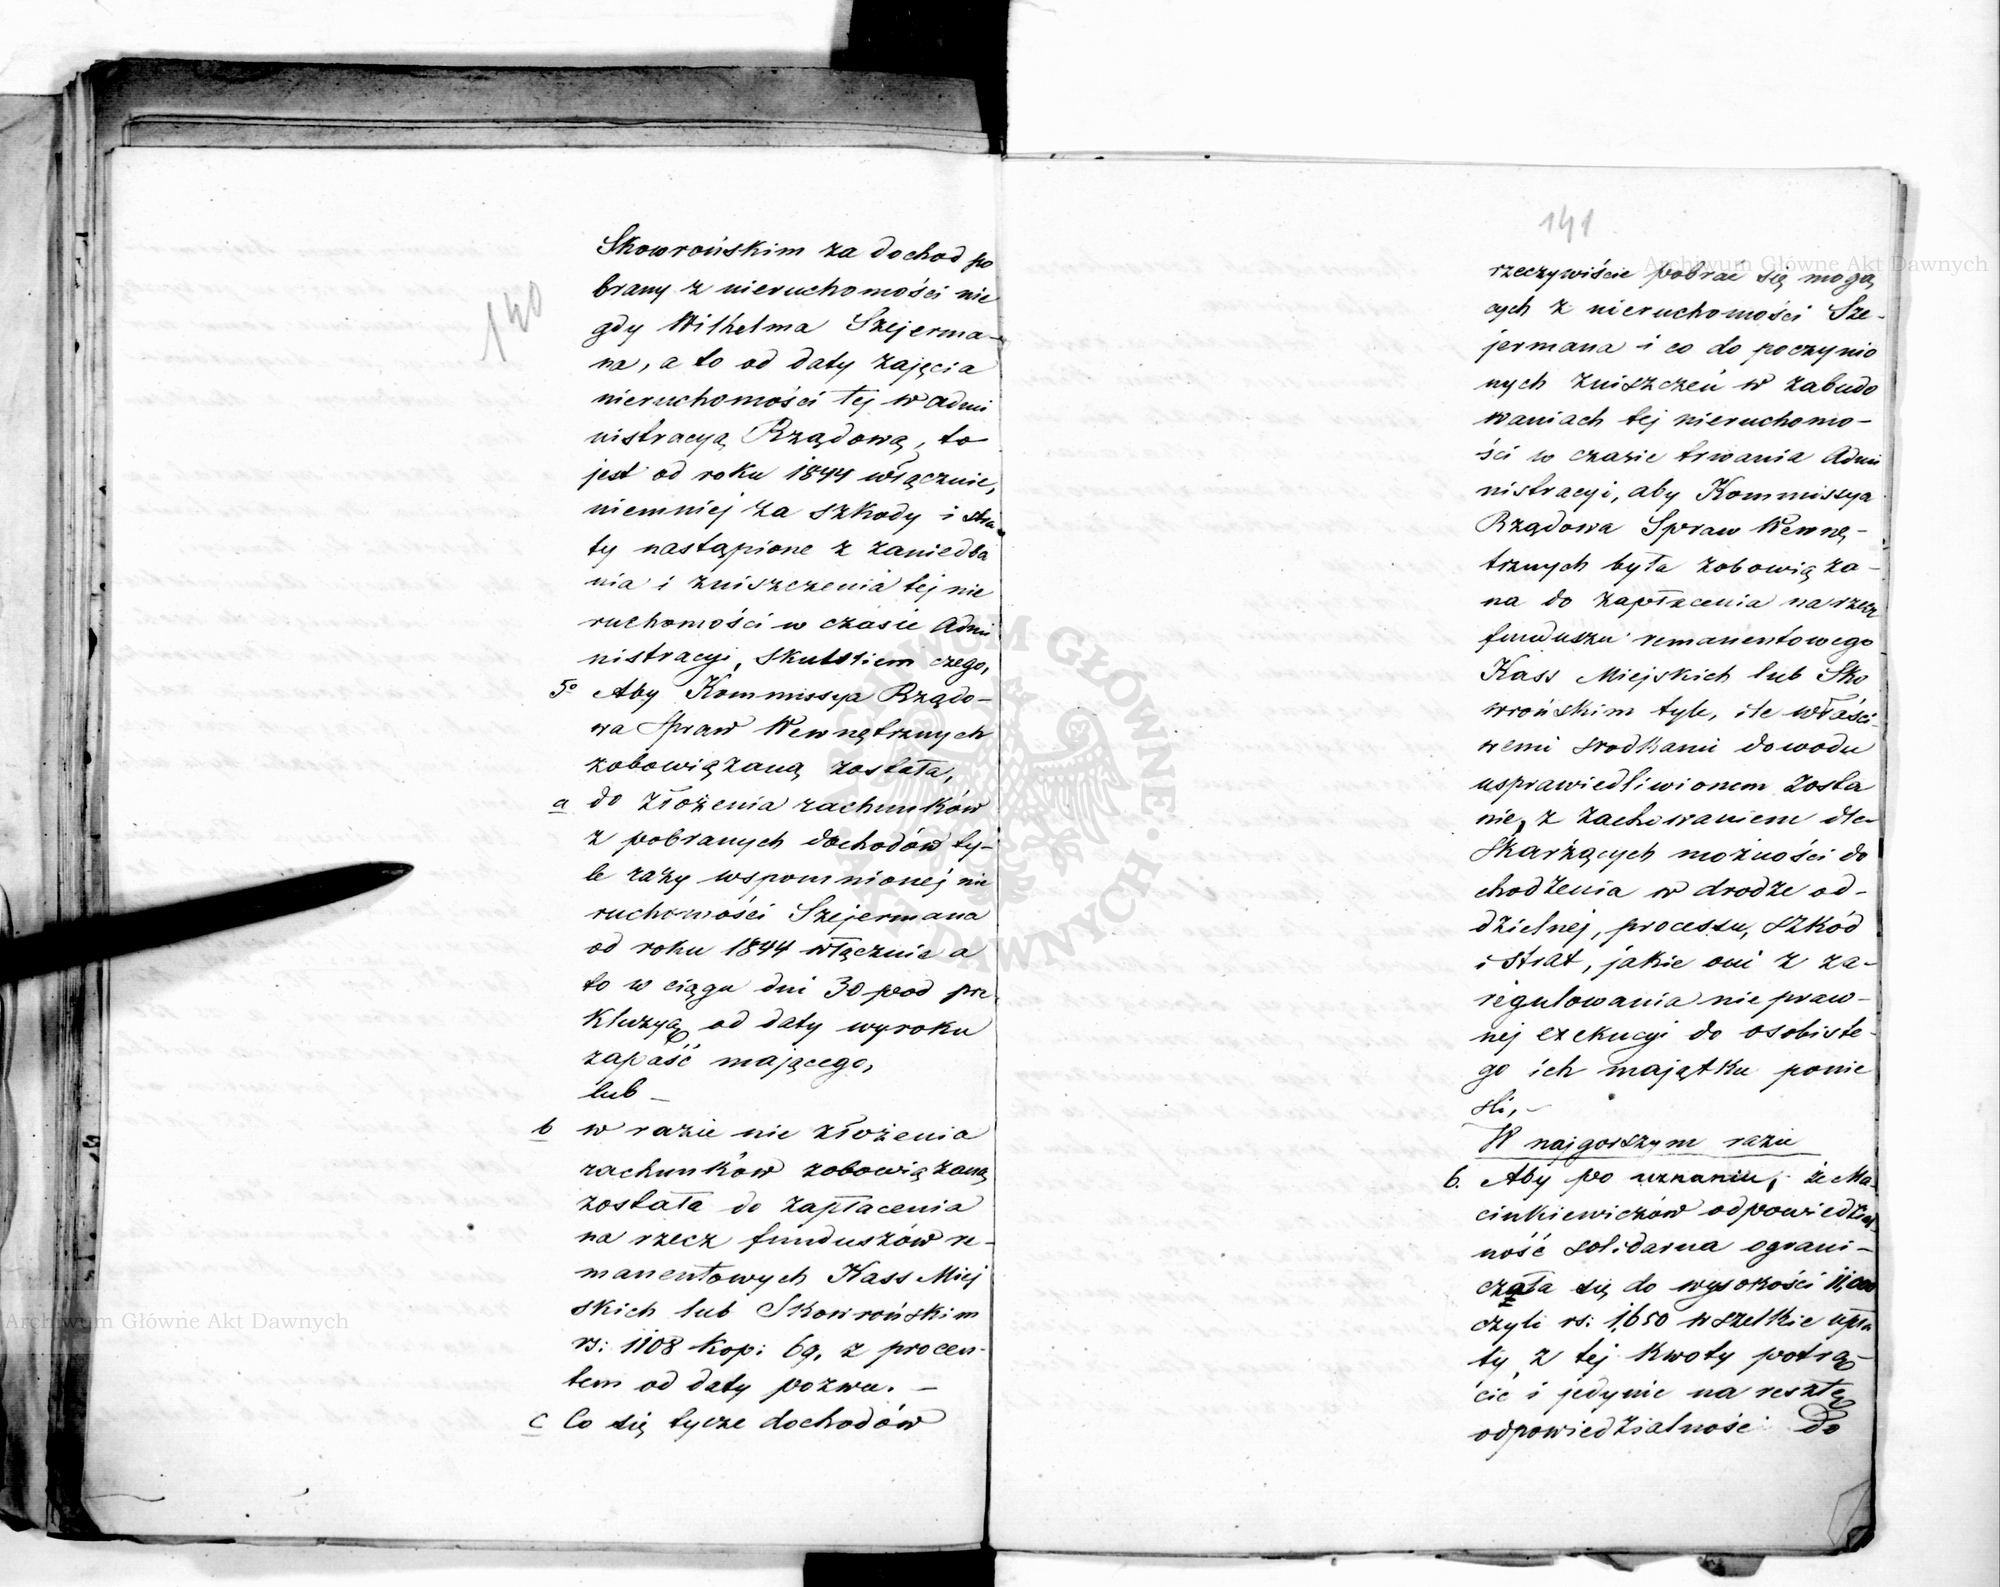 140
Skowrońskim za dochod po
brany z nieruchomości nie
gdy Wilhelma Szejerma-
na, a to od daty zajęcia
nieruchomości tej w admi
nistracyą Rządową, to
jest od roku 1844 włącznie,
niemniej za szkody i stra-
ty nastąpione z zaniedba
nia i zniszczenia tej nie
ruchomości w czasie Admi
nistracyi, skutkiem czego,
5o Aby Kommissya Rządo-
wa Spraw Wewnętrznych
zobowiązaną została,
a do złożenia rachunków
z pobranych dochodów ty-
le razy wspomnionej nie
ruchomości Szejermana
od roku 1844 włącznie a
to w ciągu dni 30 pod pre-
kluzyą od daty wyroku
zapaść mającego,
lub -
b w razie nie złożenia
rachunków zobowiązaną
została do zapłacenia
na rzecz funduszów re-
manentowych Kass Miej
skich lub Skowrońskim
rs: 1108 kop: 69, z procen-
tem od daty pozwu. -
c Co się tycze dochodów
141
rzeczywiście pobrac się mogą
cych z nieruchomości Sze-
jermana i co do poczynio
nych zniszczeń w zabudo
waniach tej nieruchomo-
ści w czasie trwania Admi
nistracyi, aby Kommissya
Rządowa Spraw Wewnę-
trznych była zobowiąza-
na do zapłacenia na rzecz
funduszu remanentowego
Kass Miejskich lub Sko
wrońskim tyle, ile właści-
wemi srodkami dowodu
usprawiedliwionem zosta
nie, z zachowaniem dla
skarżących możności do
chodzenia w drodze od-
dzielnej, processu, szkód
i strat, jakie oni z za-
regulowania nie praw-
nej exekucyi do osobiste-
go ich majątku ponie
sli, -
W najgorszym razie
6. Aby po uznaniu, że Ma-
cinkiewiczów odpowiedzial
ność solidarna ograni-
czała się do wysokości 11,000
czyli rs: 1,650 wszelkie upła
ty z tej kwoty potrą-
cić i jedynie na resztę
odpowiedzialność do
Archiwum Główne Akt Dawnych
Archiwum Główne Akt Dawnych
ARCHIWUM GŁÓWNE AKT DAWNYCH